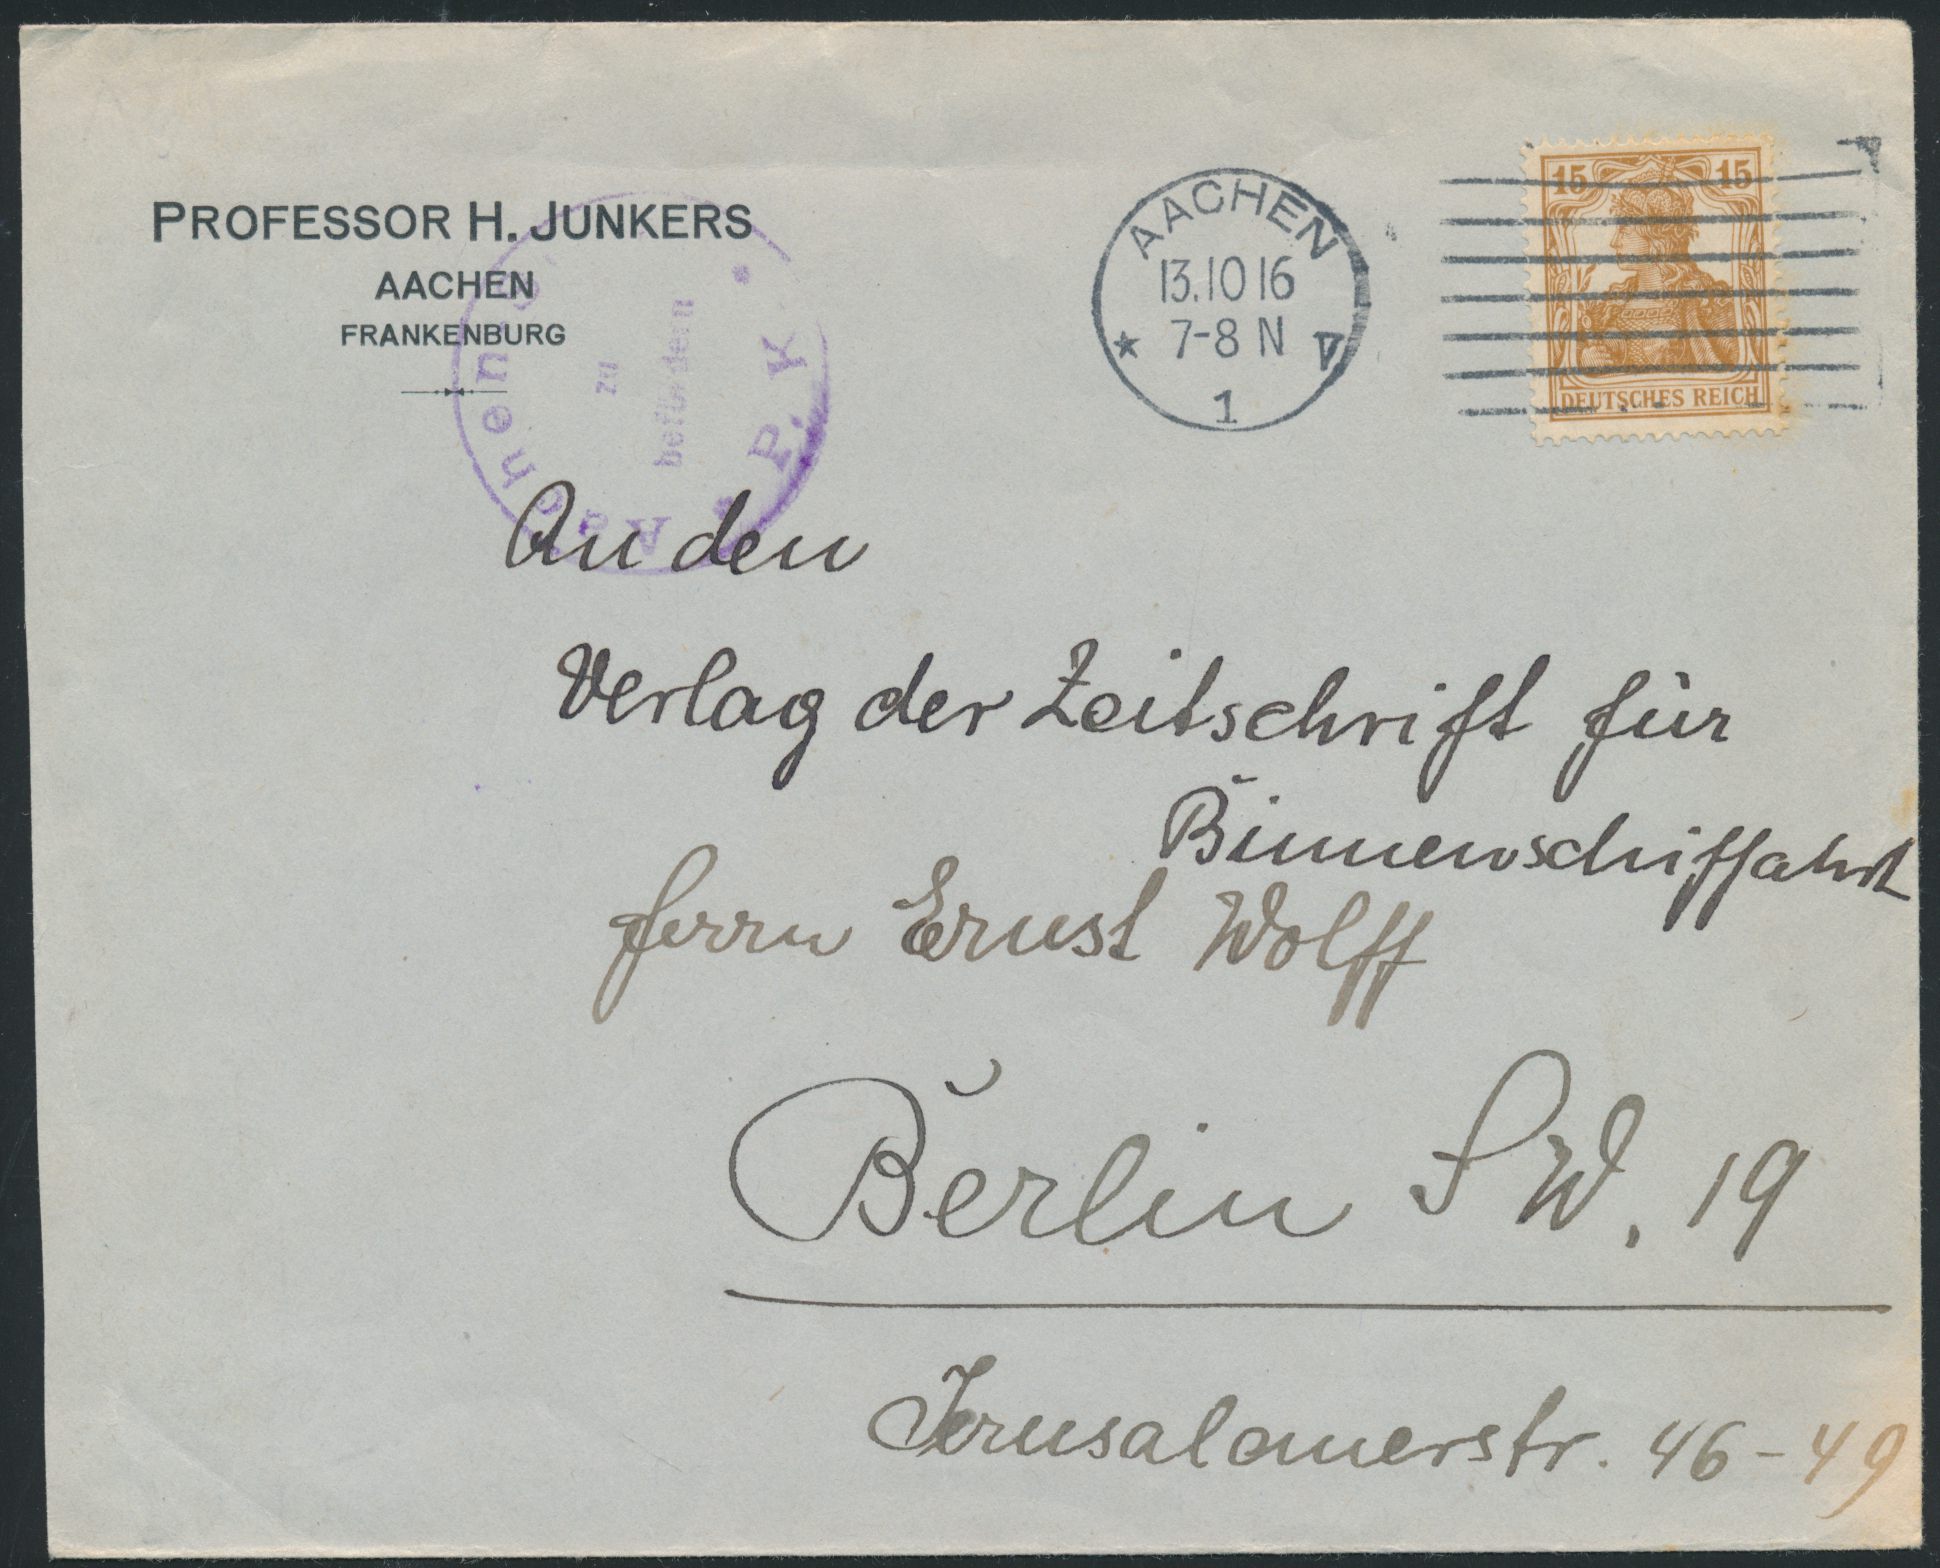 PROFESSOR H. JUNKERS
AACHEN
FRANKENBURG
Aachen
zu
befördern
P.K.
AACHEN
13.10 16
7-8 N
1
15 15
DEUTSCHES REICH
An den
Verlag der Zeitschrift für
Binnenschiffahrt
Herrn Ernst Wolff
Berlin SW. 19
Jerusalemerstr. 46-49